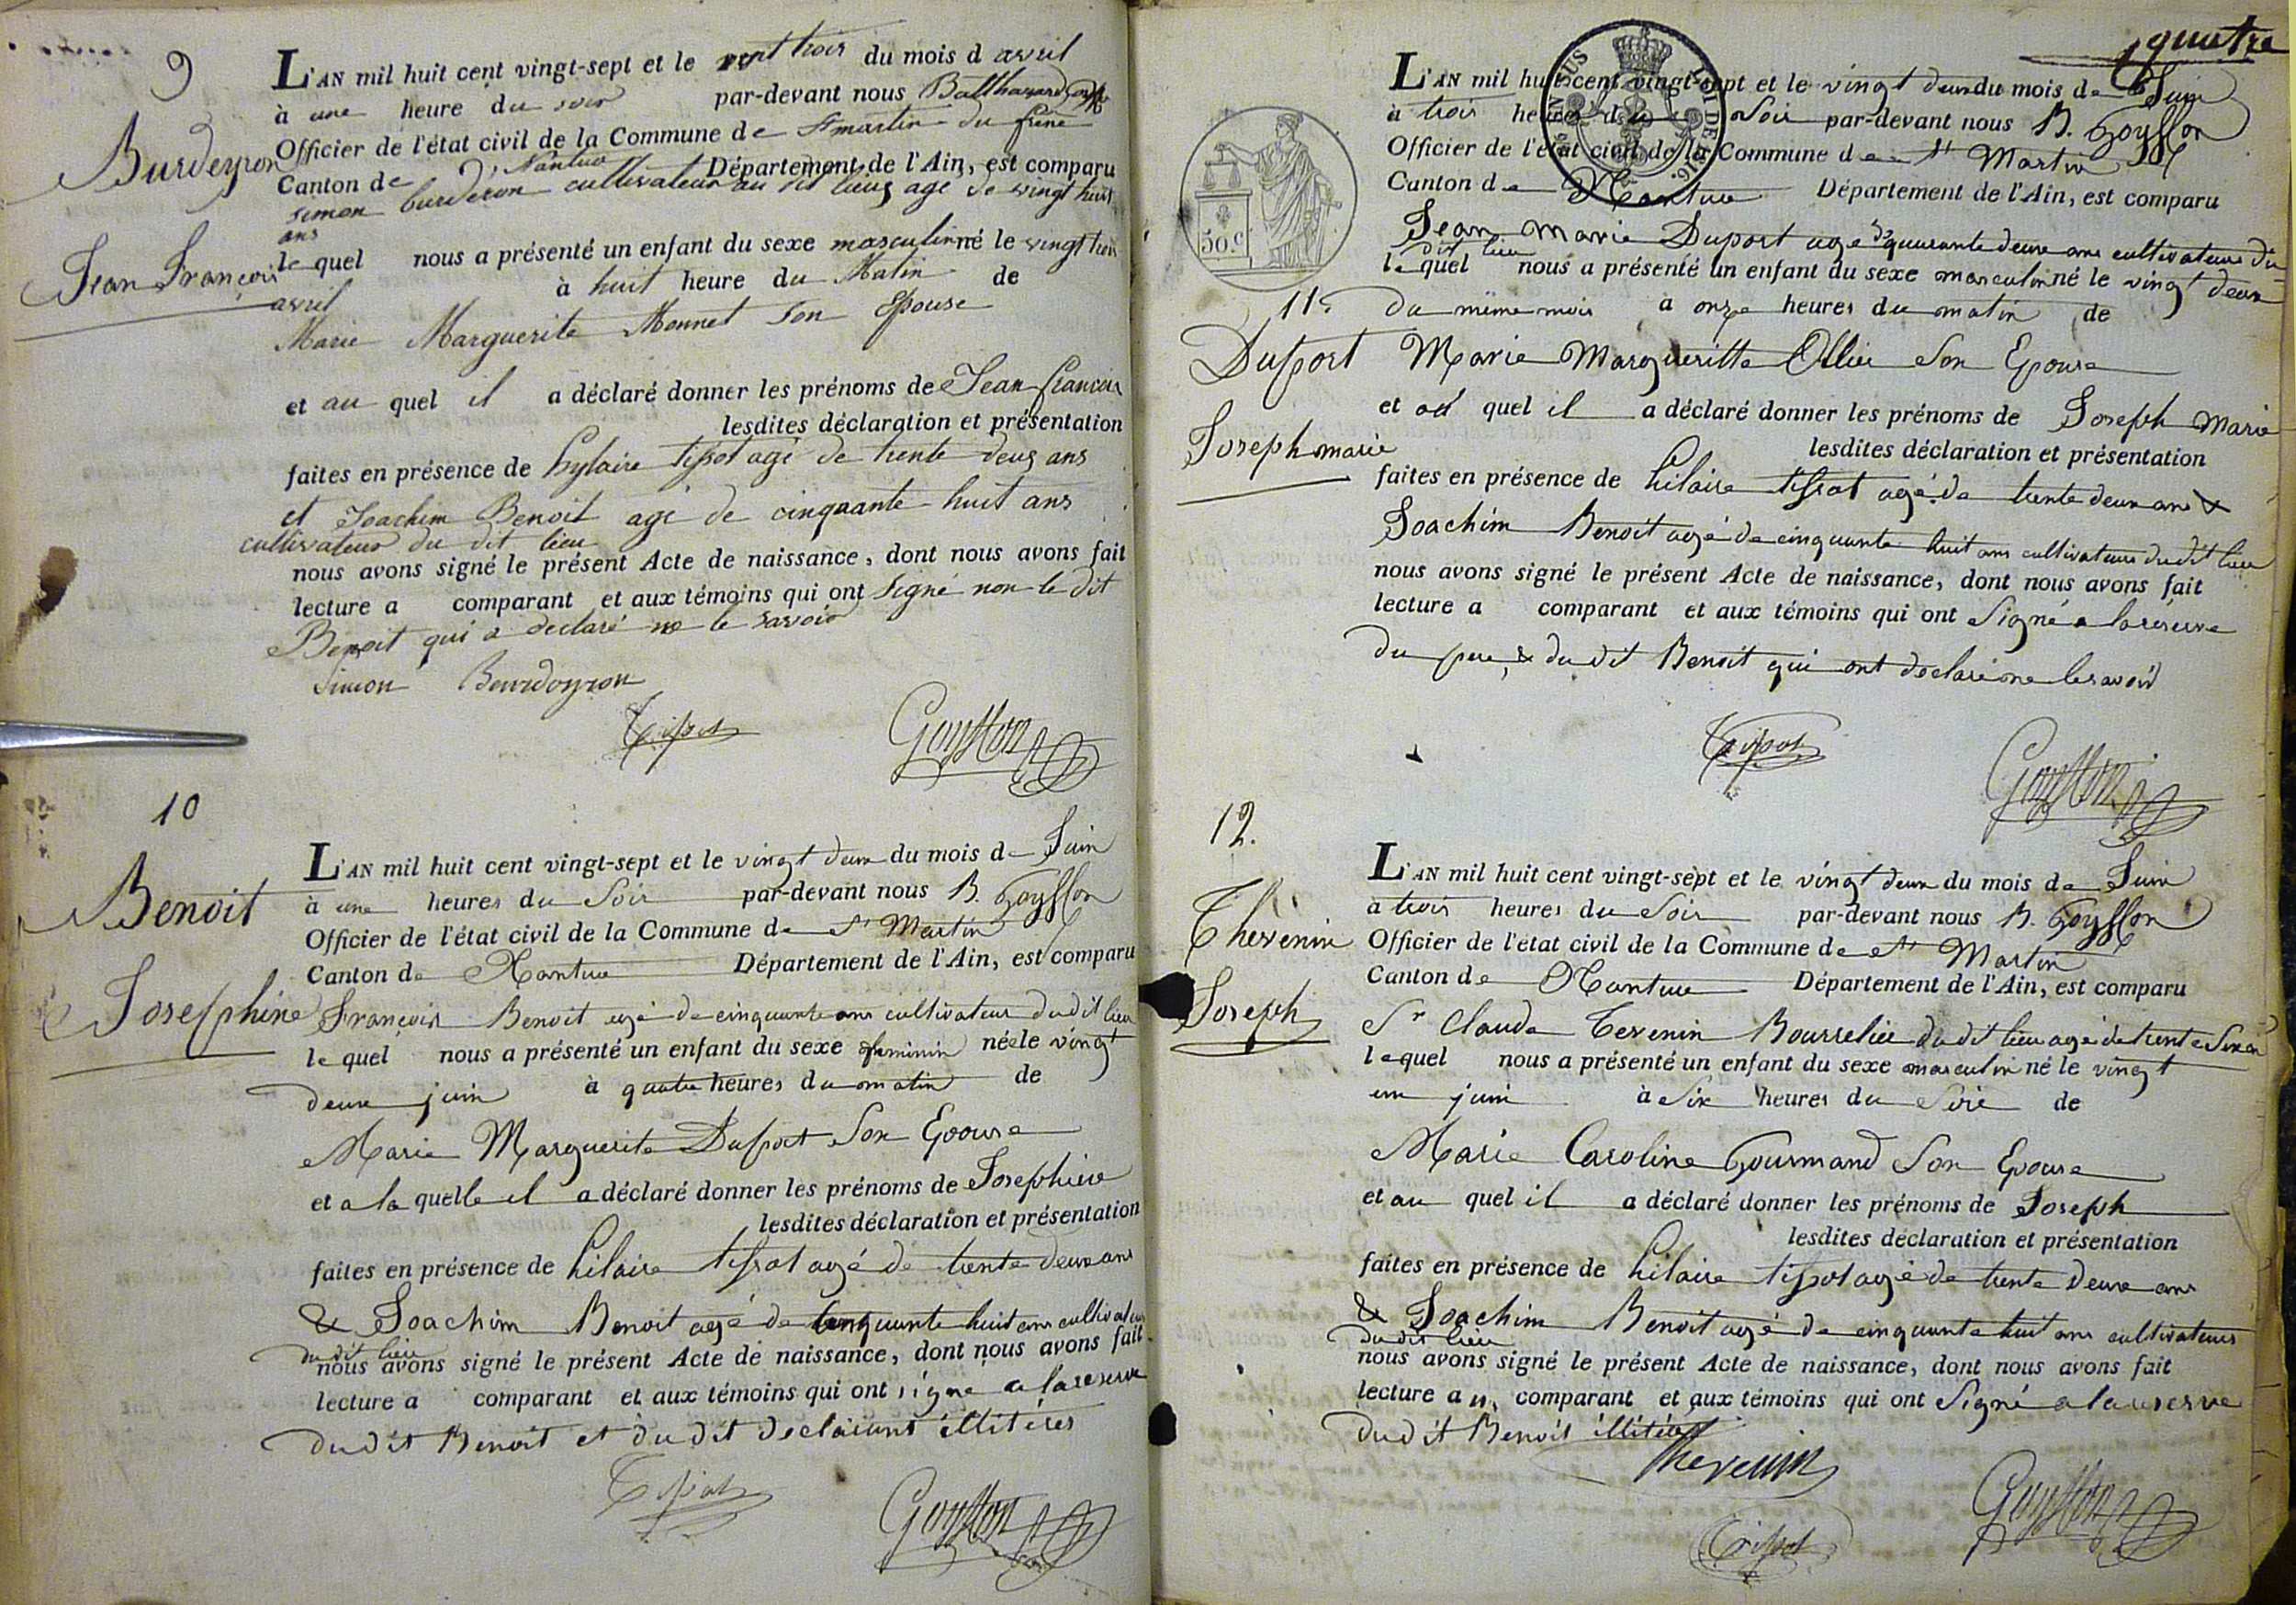 9
Burdeyron
Jean François
L'AN mil huit cent vingt-sept et le vent trois du mois d avril
à une heure du soir par-devant nous Balthazard
Officier de l'état civil de la Commune de St martin du frene
Canton de Nantua Département de l'Ain, est comparu
simon burderon cultivateur au dit lieu agé de vingt huit
ans
le quel nous a présenté un enfant du sexe masculin né le vingt trois
avril à huit heure du Matin de
Marie Marguerite Monnet Son Epouse
et au quel il a déclaré donner les prénoms de Jean francois
lesdites déclaration et présentation
faites en présence de hylaire tissot agé de trente deux ans
et Joachim Benoit agé de cinquante-huit ans
cultivateur du dit lieu
nous avons signé le présent Acte de naissance, dont nous avons fait
lecture a comparant et aux témoins qui ont Signé non le dit
Benoit qui a declaré ne le savoir
Simon Bourdoyron
Tissot Goyffon
10
Benoit
Josephine
L'AN mil huit cent vingt-sept et le vingt deux du mois de Juin
à une heures du Soir par-devant nous B. Goyffon
Officier de l'état civil de la Commune de St Martin
Canton de Nantua Département de l'Ain, est comparu
François Benoit agé de cinquante ans cultivateur du dit lieu
le quel nous a présenté un enfant du sexe feminin née le vingt
deux juin à quatre heures du matin de
Marie Marguerite Duport Son Epouse
et a la quelle il a déclaré donner les prénoms de Josephine
lesdites déclaration et présentation
faites en présence de hilaire tissot agé de trente deux ans
& Joachim Benoit agé de cinquante huit ans cultivateur
du dit lieu
nous avons signé le présent Acte de naissance, dont nous avons fait
lecture a comparant et aux témoins qui ont signé a la reserve
du dit Benoit et du dit declarant illitéres
Tissot Goyffon
quatre
50 c
11.
Duport
Joseph marie
L'AN mil huit cent vingt-sept et le vingt deux du mois de Juin
à trois heures du Soir par-devant nous B. Goyffon
Officier de l'état civil de la Commune de St Martin
Canton de Nantua Département de l'Ain, est comparu
Jean Marie Duport agé de quarante deux ans cultivateur du
dit lieu
le quel nous a présenté un enfant du sexe masculin né le vingt deux
du même mois à onze heures du matin de
Marie Margueritte Ollier Son Epouse
et au quel il a déclaré donner les prénoms de Joseph Marie
lesdites déclaration et présentation
faites en présence de hilaire tissot agé de trente deux ans &
Joachim Benoit agé de cinquante huit ans cultivateur du dit lieu
nous avons signé le présent Acte de naissance, dont nous avons fait
lecture a comparant et aux témoins qui ont Signé a la réserve
du pere, & du dit Benoit qui ont declaré ne le savoir
Tissot Goyffon
12.
Thevenin
Joseph
L'AN mil huit cent vingt-sept et le vingt deux du mois de Juin
à trois heures du Soir par-devant nous B. Goyffon
Officier de l'état civil de la Commune de St Martin
Canton de Nantua Département de l'Ain, est comparu
Sr Claude Tevenin Bourrelier du dit lieu agé de trente Six an
le quel nous a présenté un enfant du sexe masculin né le vingt
un juin à Six heures du Soire de
Marie Caroline Gourmand Son Epouse
et au quel il a déclaré donner les prénoms de Joseph
lesdites déclaration et présentation
faites en présence de hilaire tissot agé de trente deux ans
& Joachim Benoit agé de cinquante huit ans cultivateurs
du dit lieu
nous avons signé le présent Acte de naissance, dont nous avons fait
lecture au comparant et aux témoins qui ont Signé a la reserve
du dit Benoit illitéré
Thevenin
Tissot Goyffon